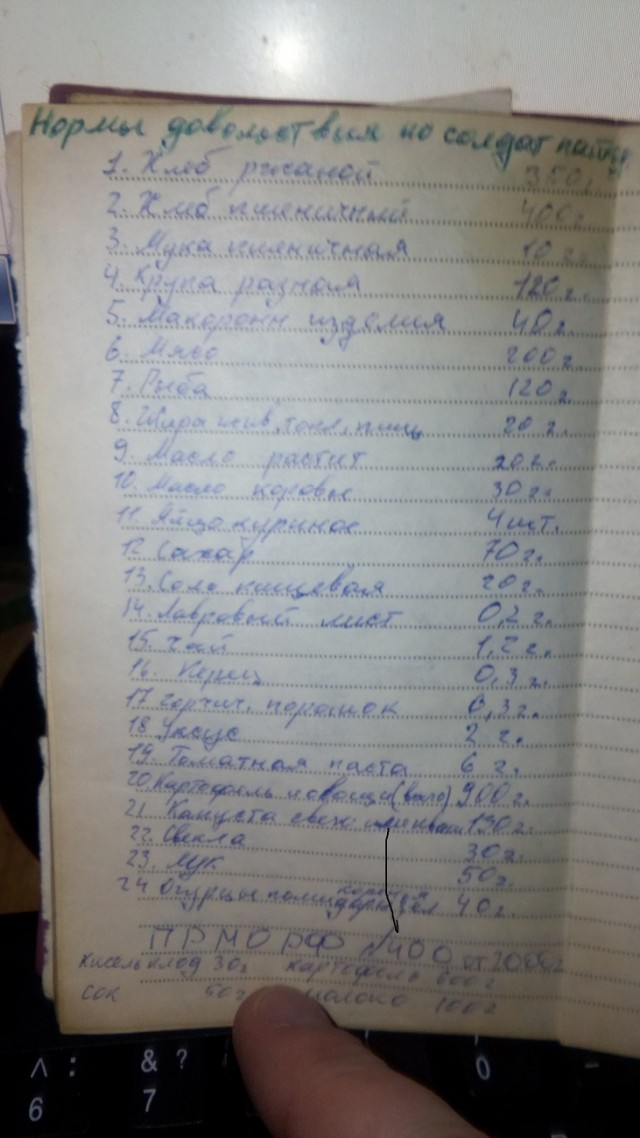 Нормы довольствия по солдат пайку
1. Хлеб ржаной 350 г.
2. Хлеб пшеничный 400 г.
3. Мука пшеничная 10 г.
4. Крупа разная 120 г.
5. Макоронн изделия 40 г.
6. Мясо 200 г.
7. Рыба 120 г.
8. Жира жив., топл., пищ 20 г.
9. Масло растит 20 г.
10. Масло коровье 30 г.
11. Яйцо куриное 4 шт.
12 Сахар 70 г.
13. Соль пищевая 20 г.
14. Лавровый лист 0,2 г.
15. Чай 1,2 г.
16. Перец 0,3 г.
17 горчич. порошок 0,3 г.
18 Уксус 2 г.
19. Томатная паста 6 г.
20 Картофель и овощи (всего) 900 г.
21 Капуста свежо или кваш 130 г.
22. Свекла 30 г.
23. Лук 50 г.
24 Огурцы помидоры 40 г.
ПРМО РФ №400 от 2000 г
кисель плод 30 г картофель 600 г
сок 50 г молоко 100 г
^ : & ?
6 7 0